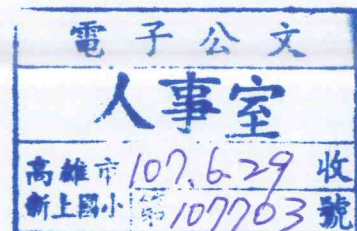 電子公文
人事室
高雄市 107.6.29 收
新上國小 第 107703 號